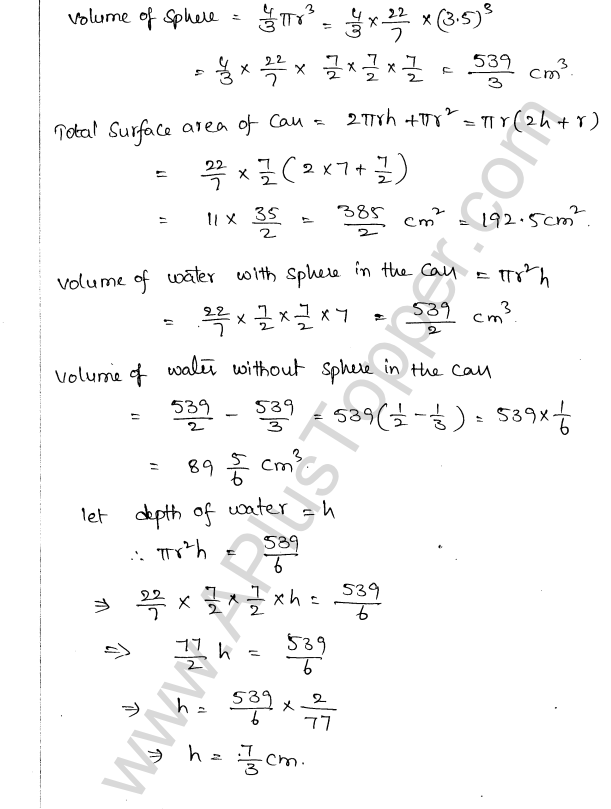 Volume of sphere = 4/3 πr³ = 4/3 × 22/7 × (3.5)³
= 4/3 × 22/7 × 7/2 × 7/2 × 7/2 = 539/3 cm³.
Total surface area of Can = 2πrh + πr² = πr(2h + r)
= 22/7 × 7/2 (2 × 7 + 7/2)
= 11 × 35/2 = 385/2 cm² = 192.5cm².
Volume of water with sphere in the Can = πr²h
= 22/7 × 7/2 × 7/2 × 7 = 539/2 cm³.
Volume of water without sphere in the Can
= 539/2 - 539/3 = 539(1/2 - 1/3) = 539 × 1/6
= 89 5/6 cm³.
let depth of water = h
∴ πr²h = 539/6
⇒ 22/7 × 7/2 × 7/2 × h = 539/6
⇒ 77/2 h = 539/6
⇒ h = 539/6 × 2/77
⇒ h = 7/3 cm.
www.APlusTopper.com